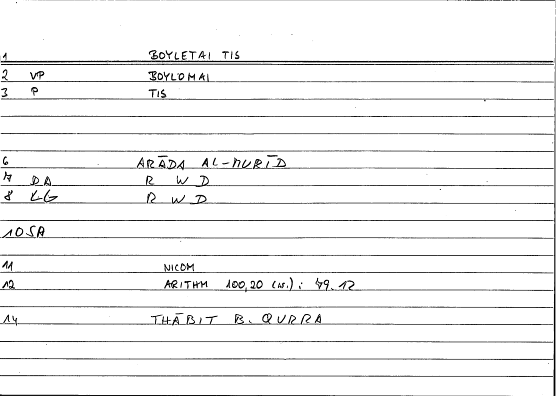 1 BOYLETAI TIS
2 VP BOYLOMAI
3 P TIS
6 ARĀDA AL-MURĪD
7 DA R W D
8 LG R W D
10 SA
11 NICOM
12 ARITHM 100,20 (w.): 79.12
14 THĀBIT B. QURRA